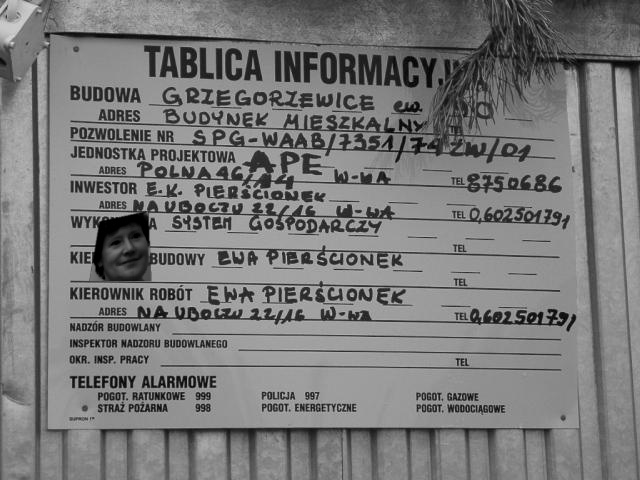 TABLICA INFORMACYJN
BUDOWA GRZEGORZEWICE ew.
ADRES BUDYNEK MIESZKALNY
POZWOLENIE NR SPG-WAAB/7351/74 ZW/01
JEDNOSTKA PROJEKTOWA APE
ADRES POLNA 46/44 W-WA TEL 8750686
INWESTOR E.K. PIERŚCIONEK
ADRES NA UBOCZU 22/16 W-WA TEL 0,602501791
SYSTEM GOSPODARCZY
TEL
BUDOWY EWA PIERŚCIONEK
TEL
KIEROWNIK ROBÓT EWA PIERŚCIONEK
ADRES NA UBOCZU 22/16 W-WA TEL 0,602501791
NADZÓR BUDOWLANY
INSPEKTOR NADZORU BUDOWLANEGO
OKR. INSP. PRACY TEL
TELEFONY ALARMOWE
POGOT. RATUNKOWE 999 POLICJA 997 POGOT. GAZOWE
STRAŻ POŻARNA 998 POGOT. ENERGETYCZNE POGOT. WODOCIĄGOWE